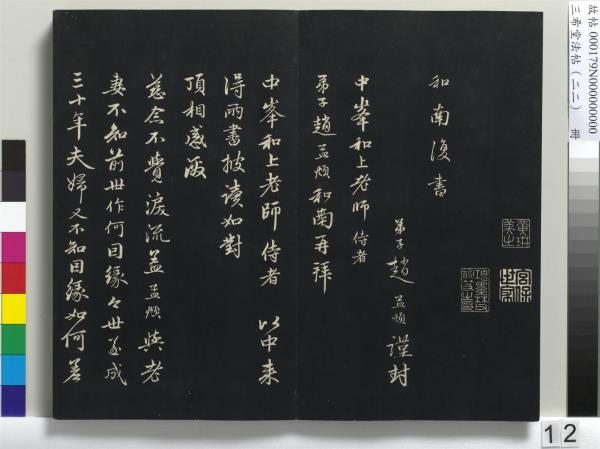 和南復書
弟子趙孟頫謹封
中峯和上老師侍者
弟子趙孟頫和南再拜
中峯和上老師侍者 以中来
得兩書披读如對
頂相感激
慈念不覺淚流盖孟頫與老
妻不知前世作何因緣今世遂成
三十年夫婦又不知因緣如何差
故帖 000179N000000000
三希堂法帖(二二) 冊
12